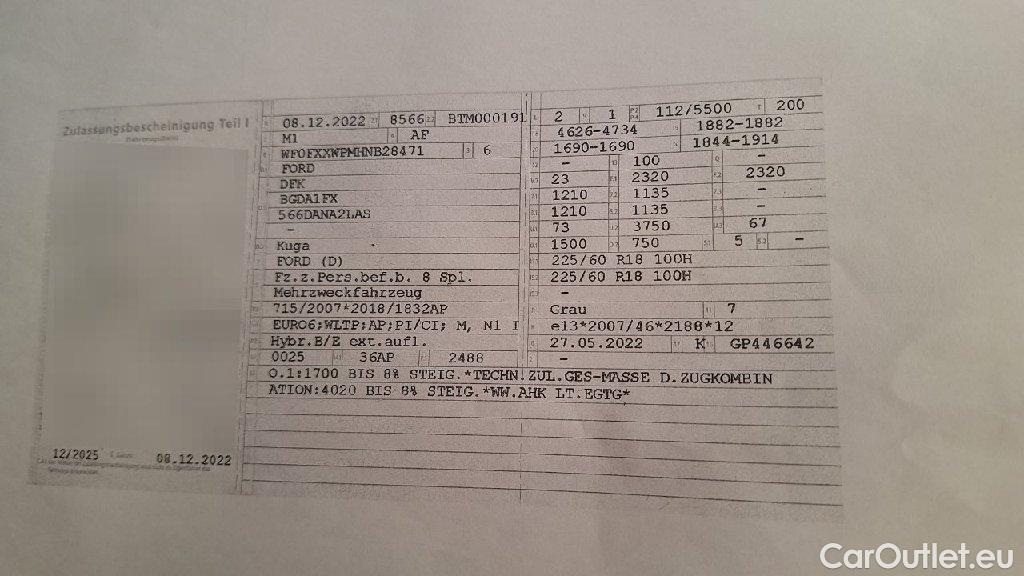 Zulassungsbescheinigung Teil I
12/2025 08.12.2022
08.12.2022 8566 BTM000191
M1 AF
WF0FXXWPMHNB28471 6
FORD
DFK
BGDA1FX
566DANA2LAS
-
Kuga
FORD (D)
Fz.z.Pers.bef.b. 8 Spl.
Mehrzweckfahrzeug
715/2007*2018/1832AP
EURO6;WLTP;AP;PI/CI; M, N1 I
Hybr.B/E ext.aufl.
0025 36AP 2488
2 1 112/5500 200
4626-4734 1882-1882
1690-1690 1844-1914
- 100 -
23 2320 2320
1210 1135 -
1210 1135 -
73 3750 67
1500 750 5 -
225/60 R18 100H
225/60 R18 100H
-
Grau 7
e13*2007/46*2188*12
27.05.2022 K GP446642
-
O.1:1700 BIS 8% STEIG.*TECHN.ZUL.GES-MASSE D.ZUGKOMBIN
ATION:4020 BIS 8% STEIG.*WW.AHK LT.EGTG*
CarOutlet.eu